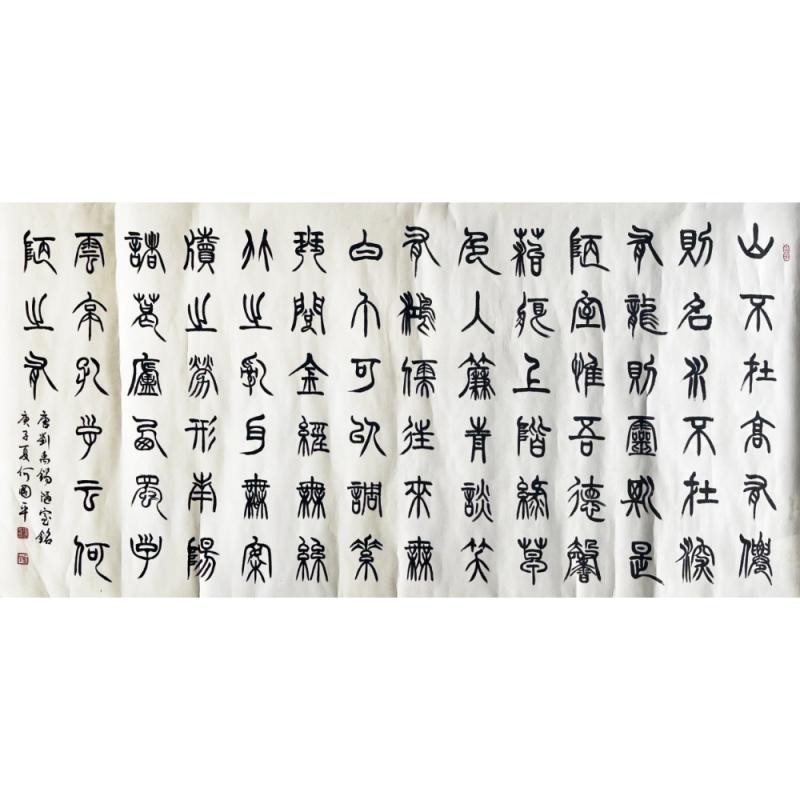 山不在高有僊
則名水不在深
有龍則靈斯是
陋室惟吾德馨
苔痕上階綠草
色入簾青談笑
有鴻儒往來無
白丁可以調素
琴閱金經無絲
竹之亂耳無案
牘之勞形南陽
諸葛廬西蜀子
雲亭孔子云何
陋之有
唐劉禹錫陋室銘
庚子夏何國平